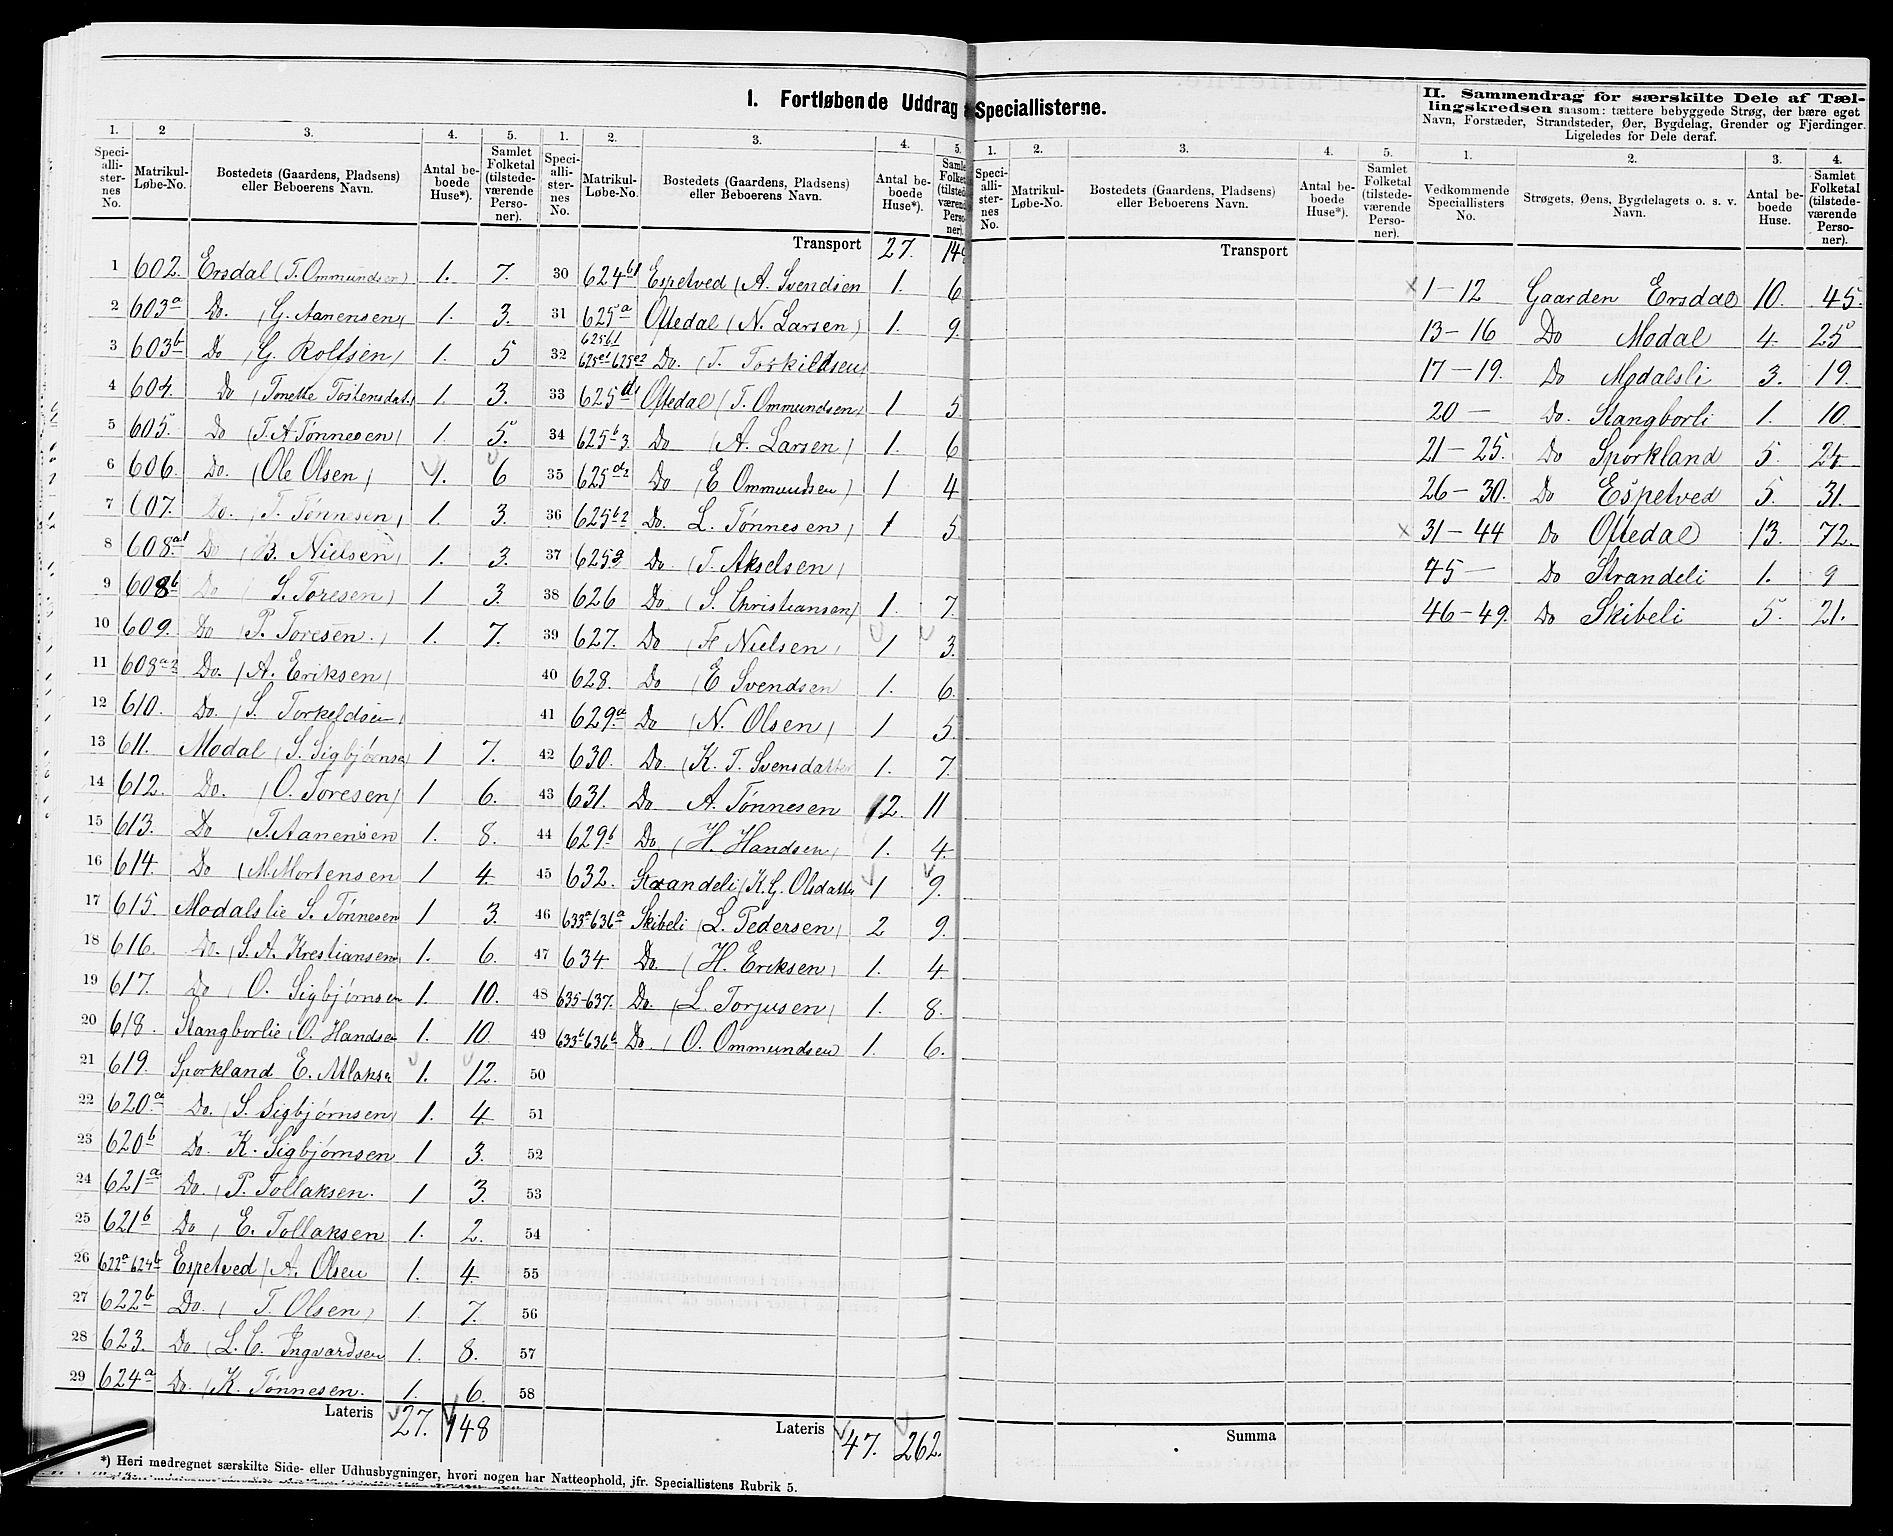 I. Fortløbende Uddrag Speciallisterne.
II. Sammendrag for særskilte Dele af Tæl-
lingskredsen saasom: tættere bebyggede Strøg, der bære eget
Navn, Forstæder, Strandsteder, Øer, Bygdelag, Grender og Fjerdinger.
Ligeledes for Dele deraf.
1. 2 3. 4. 5. 1. 2. 3. 4. 5. 1. 2. 3. 4. 5. 1. 2. 3. 4.
Speci-alli-ster-nes No. Matrikul-Løbe-No. Bostedets (Gaardens, Pladsens) eller Beboerens Navn. Antal be-boede Huse*). Samlet Folketal (tilstede-værende Perso-ner).
Speci-alli-ster-nes No. Matrikul-Løbe-No. Bostedets (Gaardens, Pladsens) eller Beboerens Navn. Antal be-boede Huse*). Samlet Folketal (tilstede-værende Perso-ner).
Speci-alli-ster-nes No. Matrikul-Løbe-No. Bostedets (Gaardens, Pladsens) eller Beboerens Navn. Antal be-boede Huse*). Samlet Folketal (tilstede-værende Perso-ner).
Vedkommende Speciallisters No. Strøgets, Øens, Bygdelagets o. s. v. Navn. Antal be-boede Huse. Samlet Folketal (tilstede-værende Perso-ner).
1 602. Ersdal (T. Ommundsen) 1. 7.
2 603a Do. (G. Aanensen) 1. 3.
3 603b Do (G. Rolfsen) 1. 5
4 604. Do (Tonette Tostensdat.) 1. 3.
5 605. Do (T. A Tønnesen) 1. 5.
6 606. Do. (Ole Olsen) 1. 6
7 607. Do. (T. Tønnesen) 1. 3.
8 608.a1 Do (B. Nielsen) 1. 3.
9 608b Do (S. Toresen) 1 3.
10 609. Do (P. Toresen.) 1. 7.
11 608a2 Do. (A. Eriksen)
12 610. Do. (S. Torkeldsen)
13 611. Modal (S. Sigbjørnsen) 1 7.
14 612. Do. (O. Toresen) 1 6.
15 613. Do (T. Aanensen 1. 8.
16 614. Do (M. Mortensen 1 4.
17 615. Modalslie S. Tønnesen 1 3.
18 616. Do. (S. A. Krestiansen 1. 6.
19 617. Do (O. Sigbjørnsen 1. 10.
20 618. Stangborlie (O. Handsen 1. 10.
21 619. Spørkland E. Atlaksen 1. 12.
22 620.a Do. (S. Sigbjørnsen) 1. 4.
23 620b Do. K. Sigbjørnsen 1 3.
24 621a Do. (P. Tollaksen. 1 3.
25 621b Do (E. Tollaksen 1. 2.
26 622a 624b Espetved (A. Olsen 1. 4.
27 622b Do. (T. Olsen) 1. 7.
28 623. Do (L. C. Ingvardsen 1. 8.
29 624a Do. (K. Tønnesen. 1. 6.
Lateris 27. 148
Transport 27. 148
30 624b1 Espetved (A. Svendsen 1. 6
31 625a Oftedal (N. Larsen) 1. 9.
32 625b1 625c1-625c2 Do. (T. Torkildsen)
33 625d1 Oftedal (T. Ommundsen) 1 5
34 625b3. Do (A. Larsen) 1. 6
35 625d2 Do (E Ommundsen) 1 4
36 625b2 Do (L. Tønnesen) 1 5
37 Do (T. Akselsen)
38 626 Do (S. Christiansen) 1. 7.
39 627. Do (F Nielsen) 1 3.
40 628. Do (E Svendsen 1. 6.
41 629.a Do (N. Olsen) 1 5.
42 630. Do. (K. T. Svensdatter 1. 7.
43 631. Do A. Tønnesen 2. 11
44 629b Do. (H. Handsen) 1. 4.
45 632. Strandeli (K. G. Olsdatter 1 9.
46 633a 636a Skibeli (L. Pedersen) 2 9.
47 634. Do. (H. Eriksen) 1. 4
48 635-637. Do. (L. Torjusen) 1. 8.
49 633b 636b Do. (O. Ommundsen 1. 6.
50
51
52
53
54
55
56
57
58
Lateris 47. 262.
Transport
Summa
1-12 Gaarden Ersdal 10. 45.
13-16 Do Modal 4. 25
17-19. Do Modalsli 3. 19.
20- Do. Stangborli 1. 10.
21-25. Do Spørkland 5. 24
26-30. Do Espetved 5. 31.
31-44 Do Oftedal 13. 72.
45- Do Strandeli 1. 9
46-49. Do Skibeli 5. 21.
*) Heri medregnet særskilte Side- eller Udhusbygninger, hvori nogen har Natteophold, jfr. Speciallistens Rubrik 5.